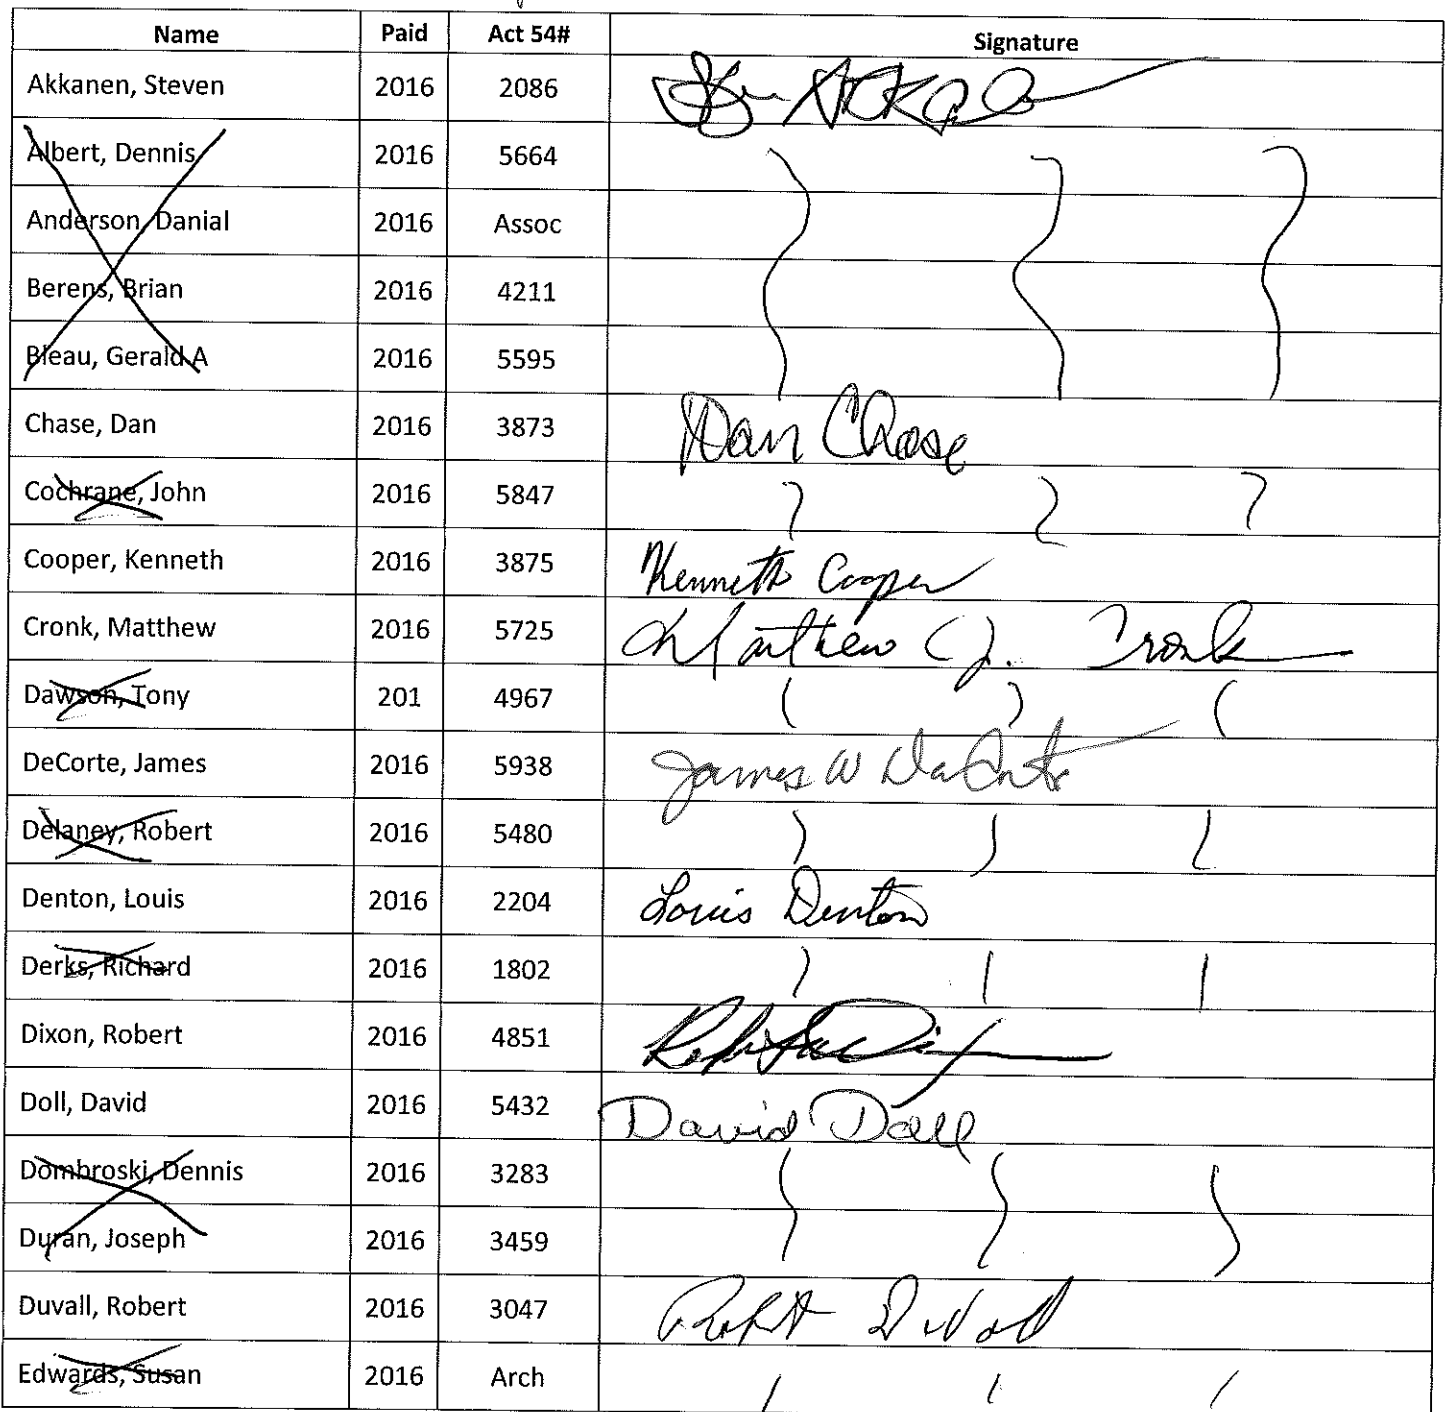 Name Paid Act 54# Signature
Akkanen, Steven 2016 2086
Albert, Dennis 2016 5664
Anderson, Danial 2016 Assoc
Berens, Brian 2016 4211
Bleau, Gerald A 2016 5595
Chase, Dan 2016 3873 Dan Chase
Cochrane, John 2016 5847
Cooper, Kenneth 2016 3875 Kenneth Cooper
Cronk, Matthew 2016 5725 Matthew J. Cronk
Dawson, Tony 201 4967
DeCorte, James 2016 5938 James W DeCorte
Delaney, Robert 2016 5480
Denton, Louis 2016 2204 Louis Denton
Derks, Richard 2016 1802
Dixon, Robert 2016 4851
Doll, David 2016 5432 David Doll
Dombroski, Dennis 2016 3283
Duran, Joseph 2016 3459
Duvall, Robert 2016 3047 Robt Duvall
Edwards, Susan 2016 Arch